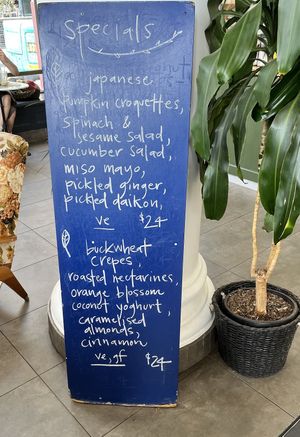 specials
japanese
pumpkin croquettes,
spinach &
sesame salad,
cucumber salad,
miso mayo,
pickled ginger,
pickled daikon,
ve $24
buckwheat
crepes,
roasted nectarines,
orange blossom
coconut yoghurt,
caramelised
almonds,
cinnamon
ve, gf $24